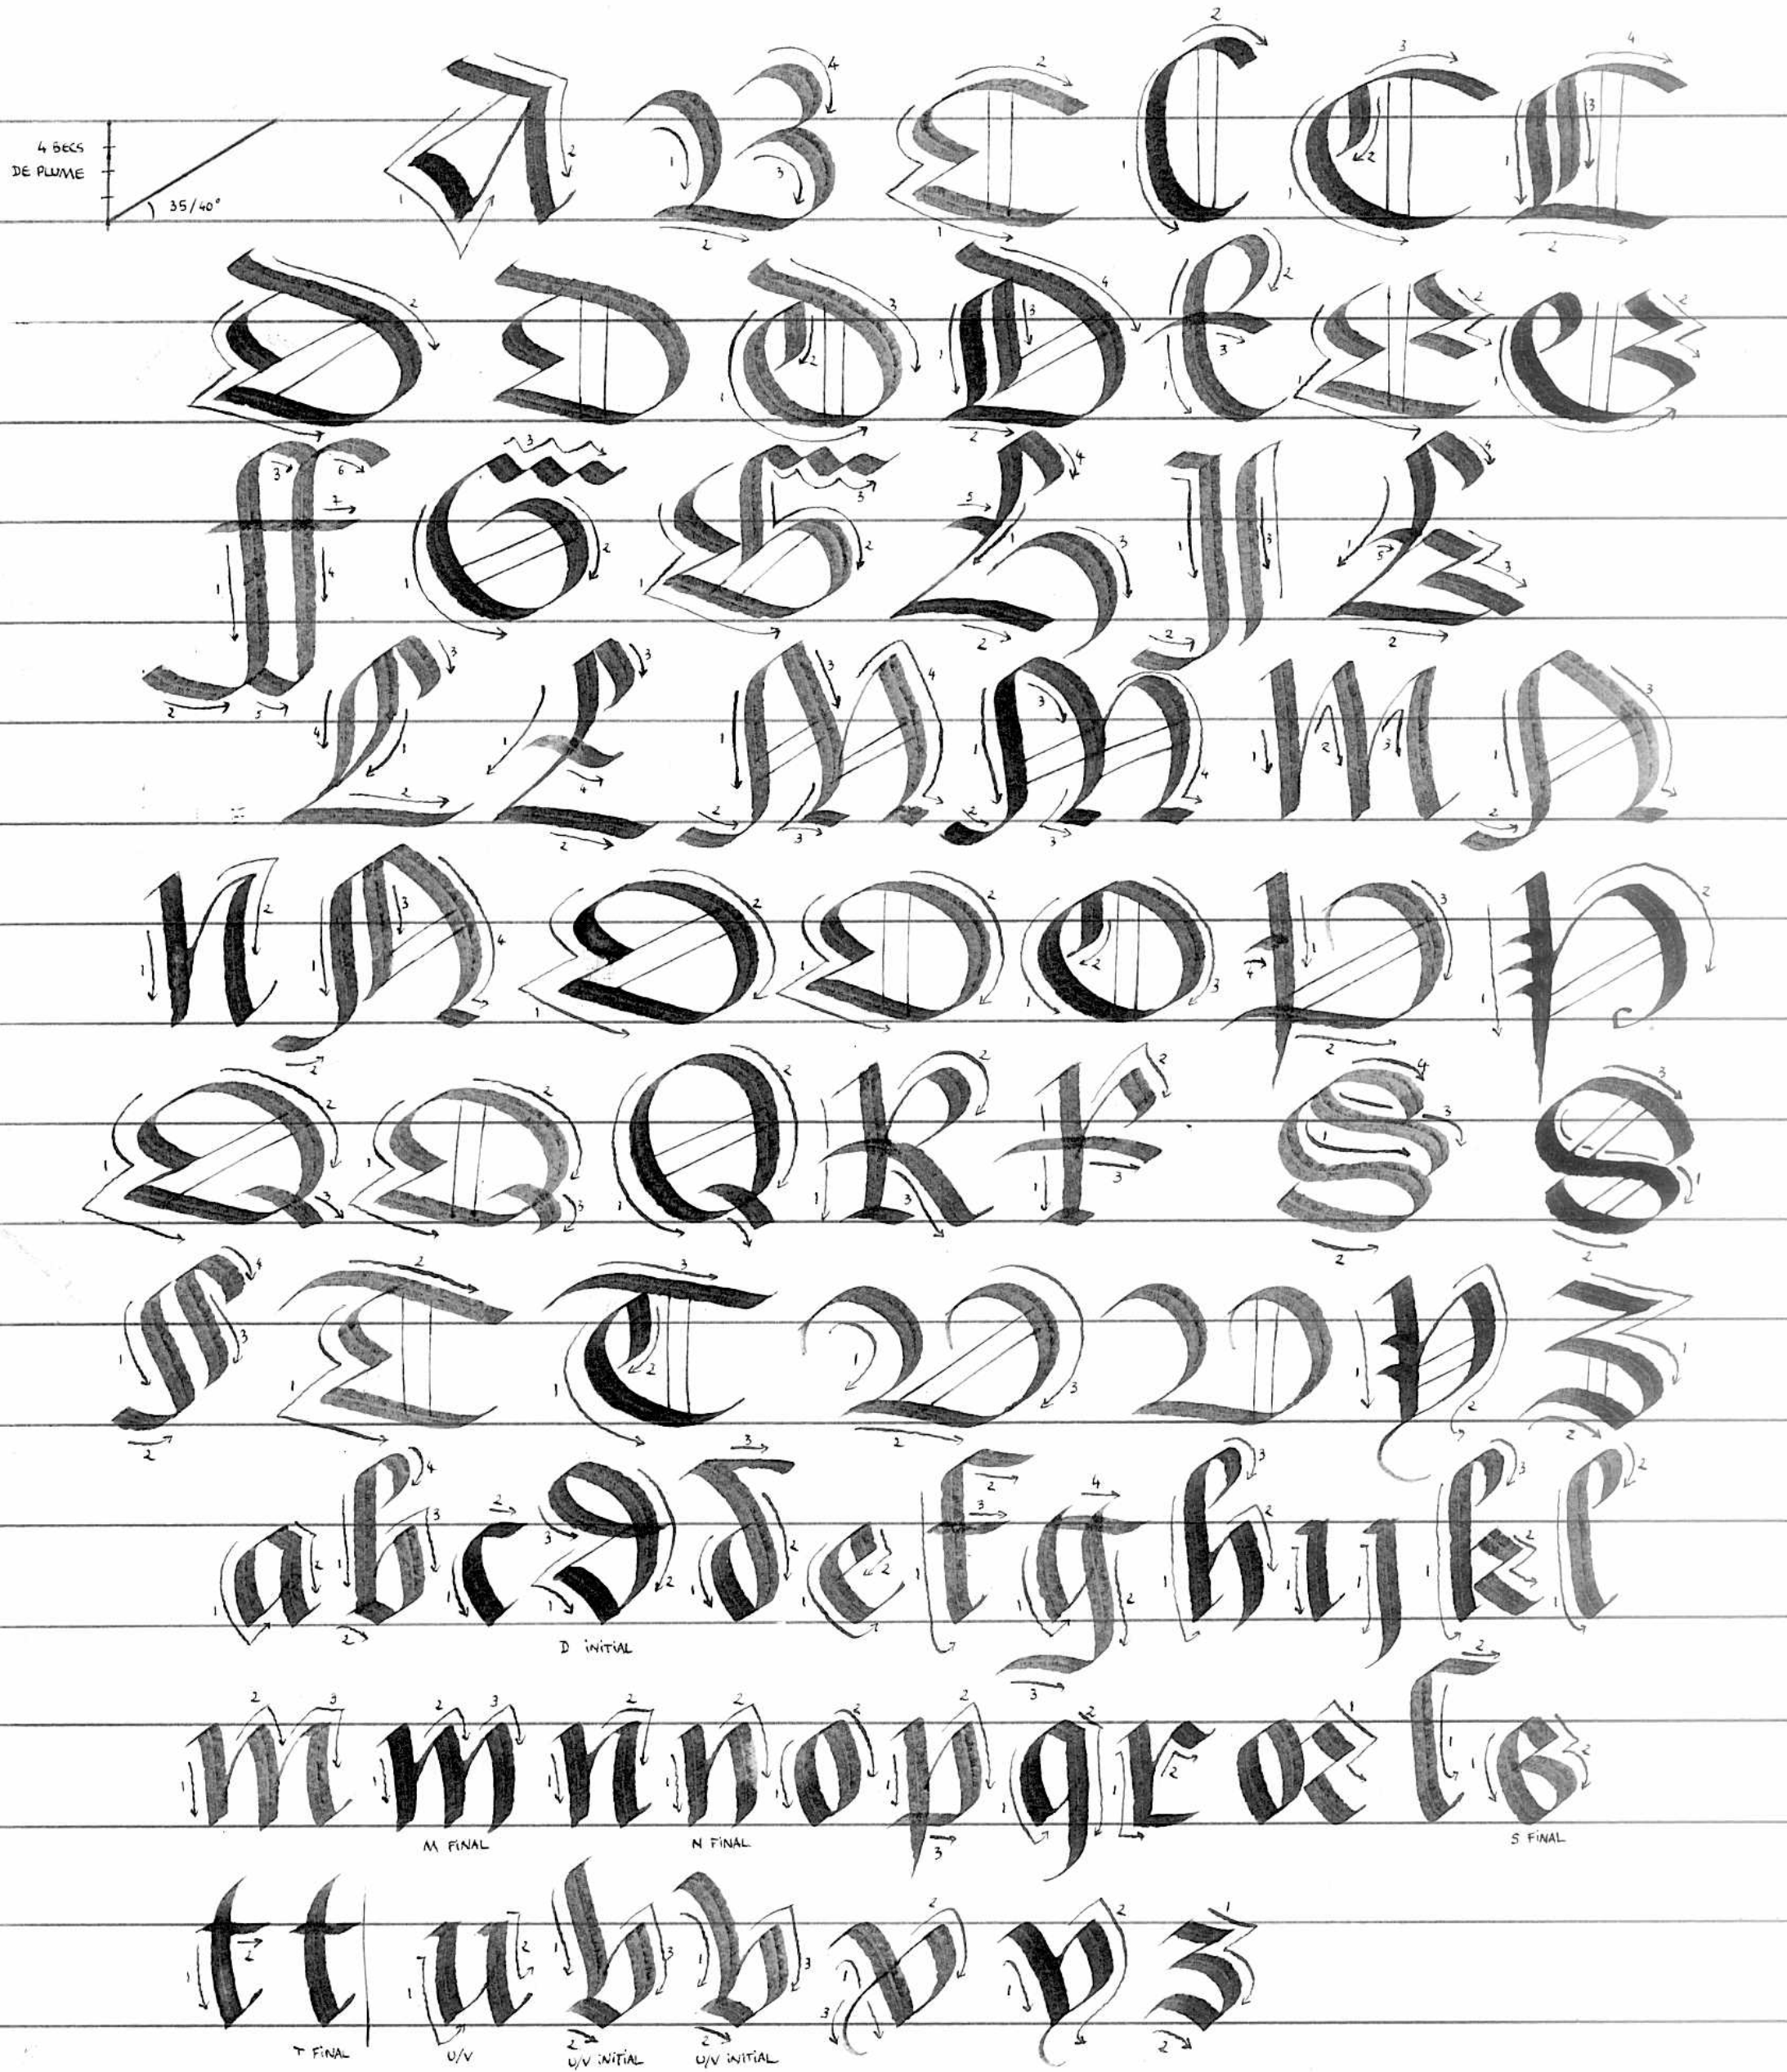 4 BECS
DE PLUME
35/40°
A B C C C C
D D D D E E E
ff G G H J K
L L M M M N
N N O O O P P
Q Q Q R R S S
S T T V V Y Z
a b c d d e f g h i j k l
D INITIAL
m m n n o p q r x ſ s
M FINAL N FINAL S FINAL
t t u v v x y z
T FINAL U/V U/V INITIAL U/V INITIAL